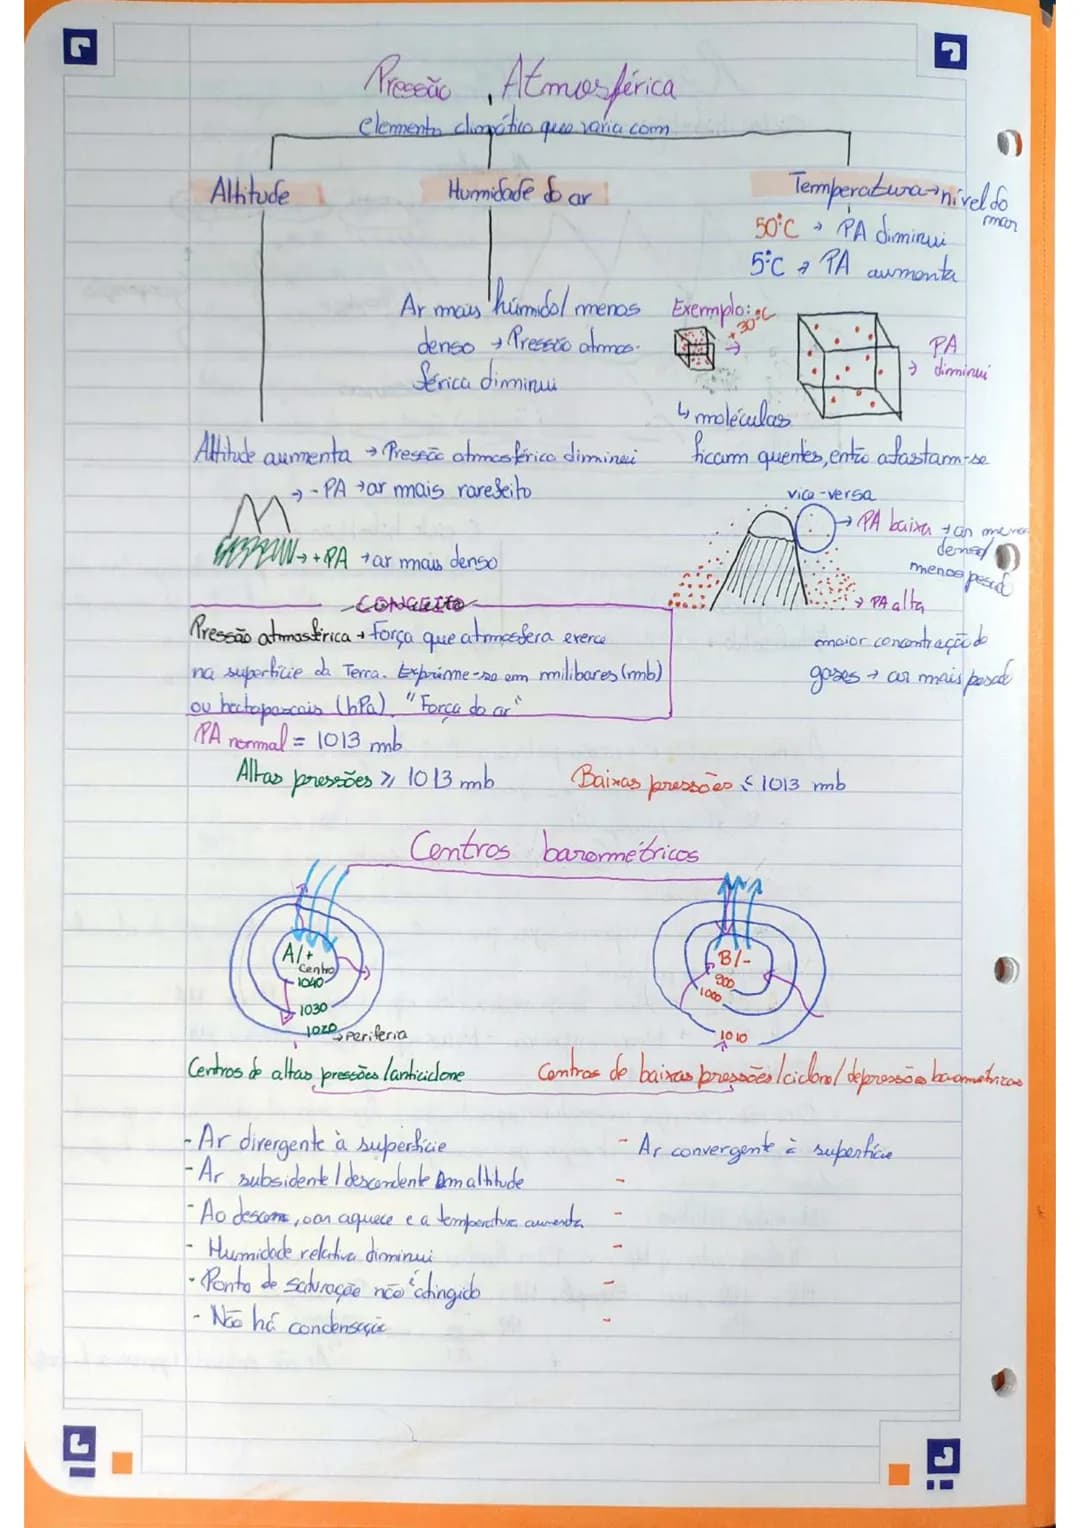 Pressão Atmosférica
elemento climático que varia com
Altitude
Humidade do ar
Temperatura → nível do mar
50°C → PA diminui
5°C → PA aumenta
Ar mais húmido/ menos
denso → Pressão atmos-
férica diminui
Exemplo:
+30°C
→ PA
diminui
↳ moléculas
ficam quentes, então afastam-se
vice-versa
Altitude aumenta → Pressão atmosférica diminui
→ - PA → ar mais rarefeito
→ + PA → ar mais denso
→ PA baixa → ar menos
denso/
menos pesado
→ PA alta
maior concentração de
gases → ar mais pesado
CONCEITO
Pressão atmosférica → Força que atmosfera exerce
na superfície da Terra. Exprime-se em milibares (mb)
ou hectopascais (hPa). "Força do ar"
PA normal = 1013 mb
Altas pressões ⩾ 1013 mb
Baixas pressões ⩽ 1013 mb
Centros barométricos
A/+
Centro
1040
1030
1020 → Periferia
B/-
900
1000
1010
Centros de altas pressões/anticiclone
Centros de baixas pressões/ciclone/depressões barométricas
- Ar divergente à superfície
- Ar subsidente/descendente em altitude
- Ao descer, o ar aquece e a temperatura aumenta
- Humidade relativa diminui
- Ponto de saturação não é atingido
- Não há condensação
- Ar convergente à superfície
-
-
-
-
-